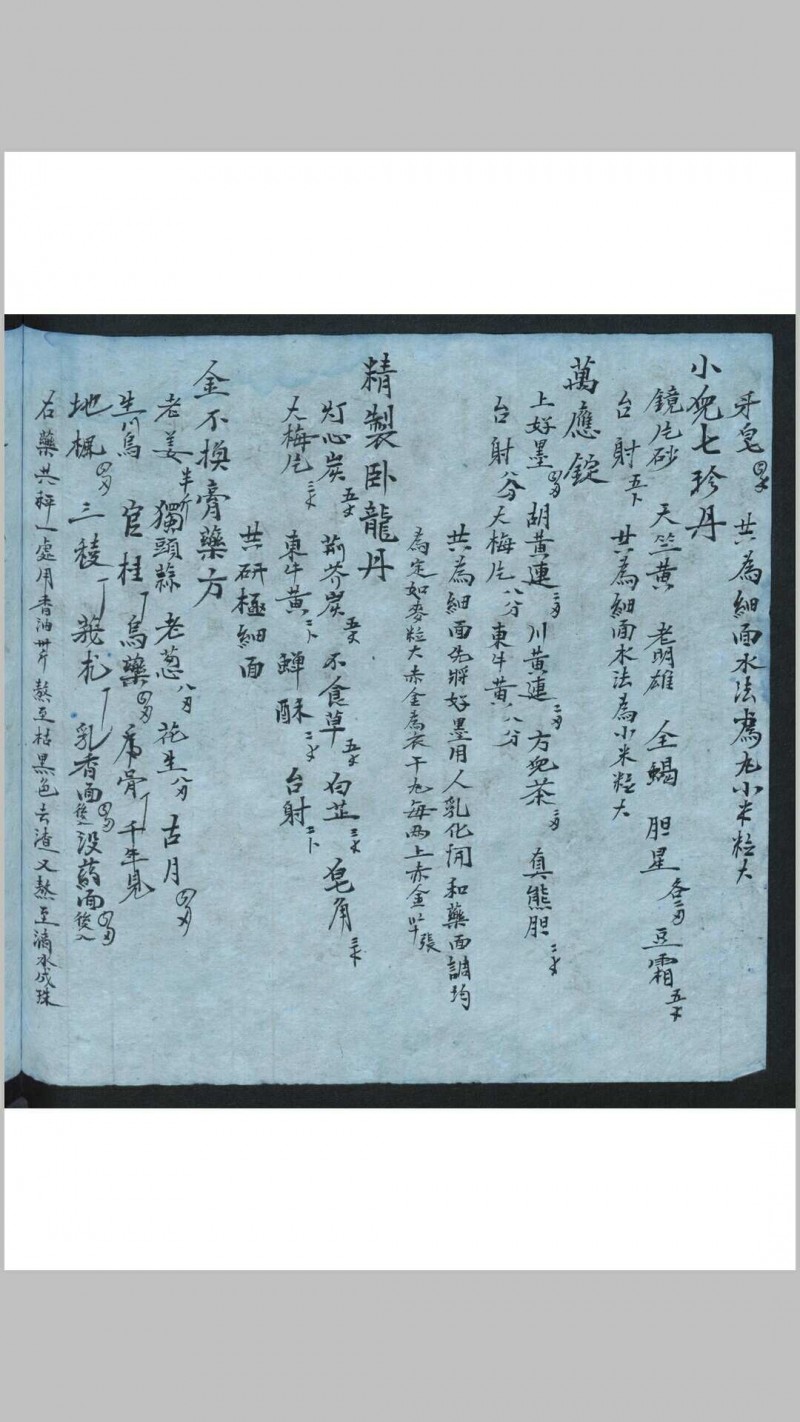 牙皂 共為細面水法為丸小米粒大
小児七珍丹
鏡片砂 天竺黃 老明雄 全蝎 胆星 各二 豆霜 五
台射 五 共為細面水法為小米粒大
萬應錠
上好墨 四 胡黃連 二 川黃連 二 方児茶 二 真熊胆 二
台射 八分 大梅片 八分 東牛黃 八分
共為細面先將好墨用人乳化開和藥面調均
為定如麥粒大赤金為衣干丸每兩上赤金 張
精製卧龍丹
灯心炭 五 荊芥炭 五 不食草 五 白芷 三 皂角 三
大梅片 三 東牛黃 二 蟬酥 二 台射 二
共研極細面
金不換膏藥方
老姜 半斤 獨頭蒜 老葱 八 花生 八 古月 四
生川烏 官桂 烏藥 四 虎骨 千年見
地楓 四 三稜 莪朮 乳香面 後入 四 没葯面 後入 四
右藥共秤一處用香油 斤熬至枯黑色去渣又熬至滴水成珠